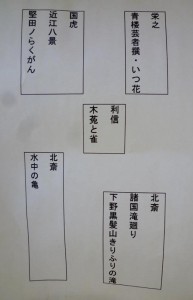 栄之
青楼芸者撰・いつ花
国虎
近江八景
堅田ノらくがん
利信
木菟と雀
北斎
諸国滝廻り
下野黒髪山きりふりの滝
北斎
水中の亀